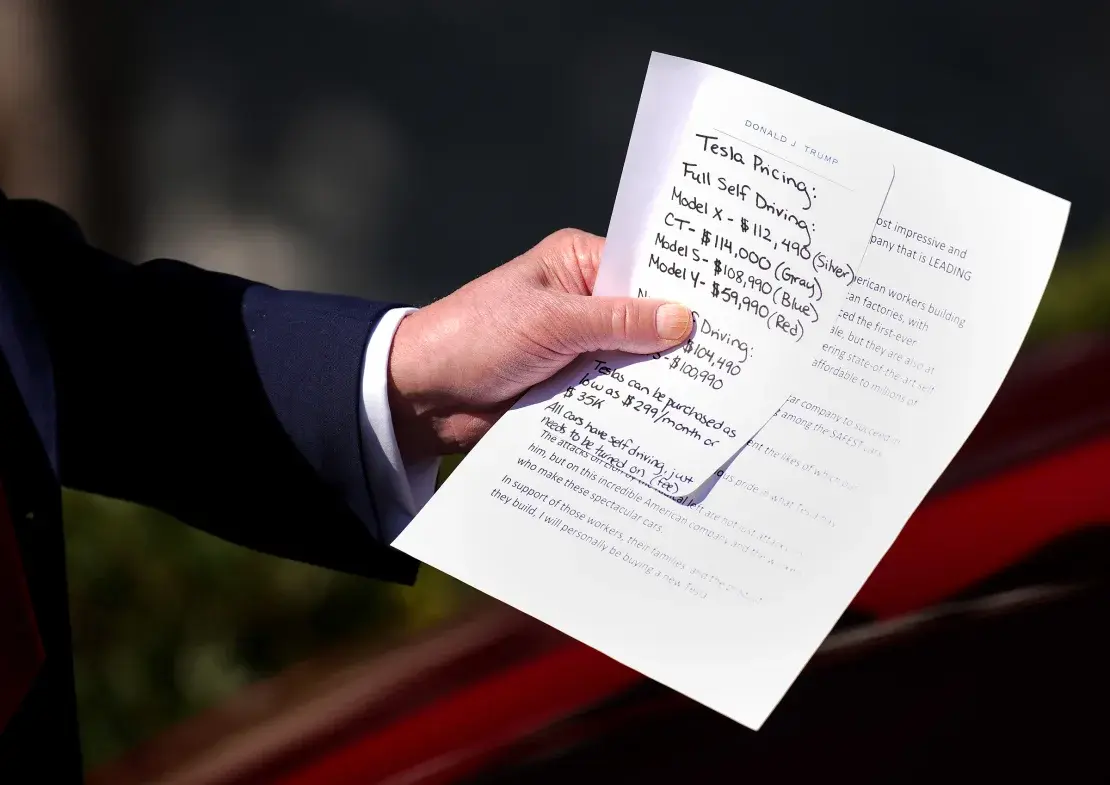 DONALD J. TRUMP
Tesla Pricing:
Full Self Driving:
Model X - $112,490 (Silver)
CT - $114,000 (Gray)
Model S - $108,990 (Blue)
Model Y - $59,990 (Red)
Driving:
$104,490
S - $100,990
Teslas can be purchased as
low as $299/month or
$35K
All cars have self driving, just
needs to be turned on (fee)
ost impressive and
pany that is LEADING
erican workers building
an factories, with
ed the first-ever
ale, but they are also at
ering state-of-the art self
affordable to millions of
ar company to succeed in
among the SAFEST cars
ent the likes of which
ous pride in what Tesla has
The attacks on left are not just attacks
him, but on this incredible American company and the
who make these spectacular cars.
In support of those workers, their families and the
they build, I will personally be buying a new Tesla